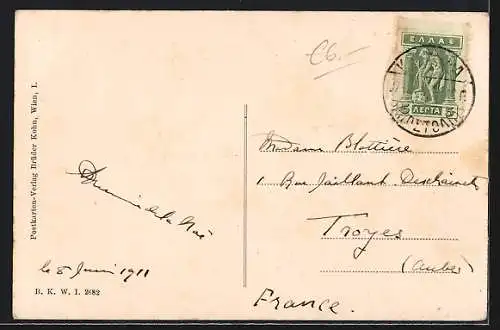 Postkarten-Verlag Brüder Kohn, Wien, I.
€6.-
ΕΛΛΑΣ
ΛΕΠΤΑ 5
Madame Blottière
1 Rue Jaillant-Deschainets
Troyes
(Aube)
France.
le 8 Juin 1911
B. K. W. I. 2682